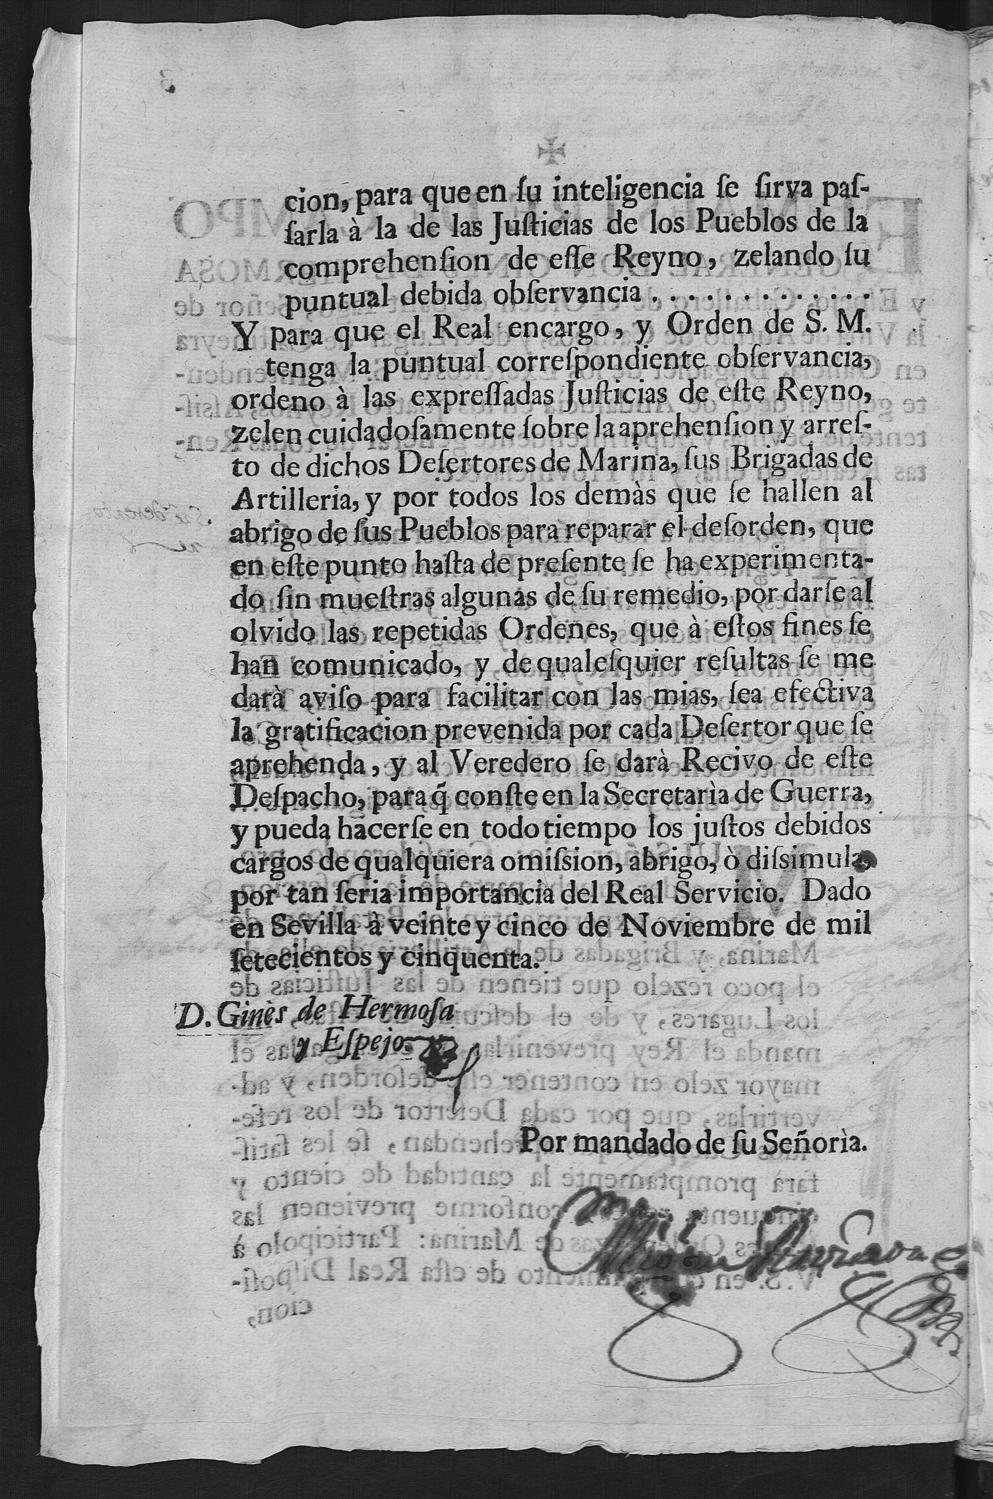 ✠
cion, para que en ſu inteligencia ſe ſirva paſ-
ſarla à la de las Juſticias de los Pueblos de la
comprehenſion de eſſe Reyno, zelando ſu
puntual debida obſervancia . . . . . . . . . . . . .
Y para que el Real encargo, y Orden de S. M.
tenga la puntual correſpondiente obſervancia,
ordeno à las expreſſadas Juſticias de eſte Reyno,
zelen cuidadoſamente ſobre la aprehenſion y arreſ-
to de dichos Deſertores de Marina, ſus Brigadas de
Artilleria, y por todos los demàs que ſe hallen al
abrigo de ſus Pueblos para reparar el deſorden, que
en eſte punto haſta de preſente ſe ha experimenta-
do ſin mueſtras algunas de ſu remedio, por darſe al
olvido las repetidas Ordenes, que à eſtos fines ſe
han comunicado, y de qualeſquier reſultas ſe me
darà aviſo para facilitar con las mias, ſea efectiva
la gratificacion prevenida por cada Deſertor que ſe
aprehenda, y al Veredero ſe darà Recivo de eſte
Deſpacho, para q̃ conſte en la Secretarìa de Guerra,
y pueda hacerſe en todo tiempo los juſtos debidos
cargos de qualquiera omiſsion, abrigo, ò diſsimula,
por tan ſeria importancia del Real Servicio. Dado
en Sevilla à veinte y cinco de Noviembre de mil
ſetecientos y cinquenta.
D. Ginès de Hermoſa
y Eſpejo.
Por mandado de ſu Señorìa.